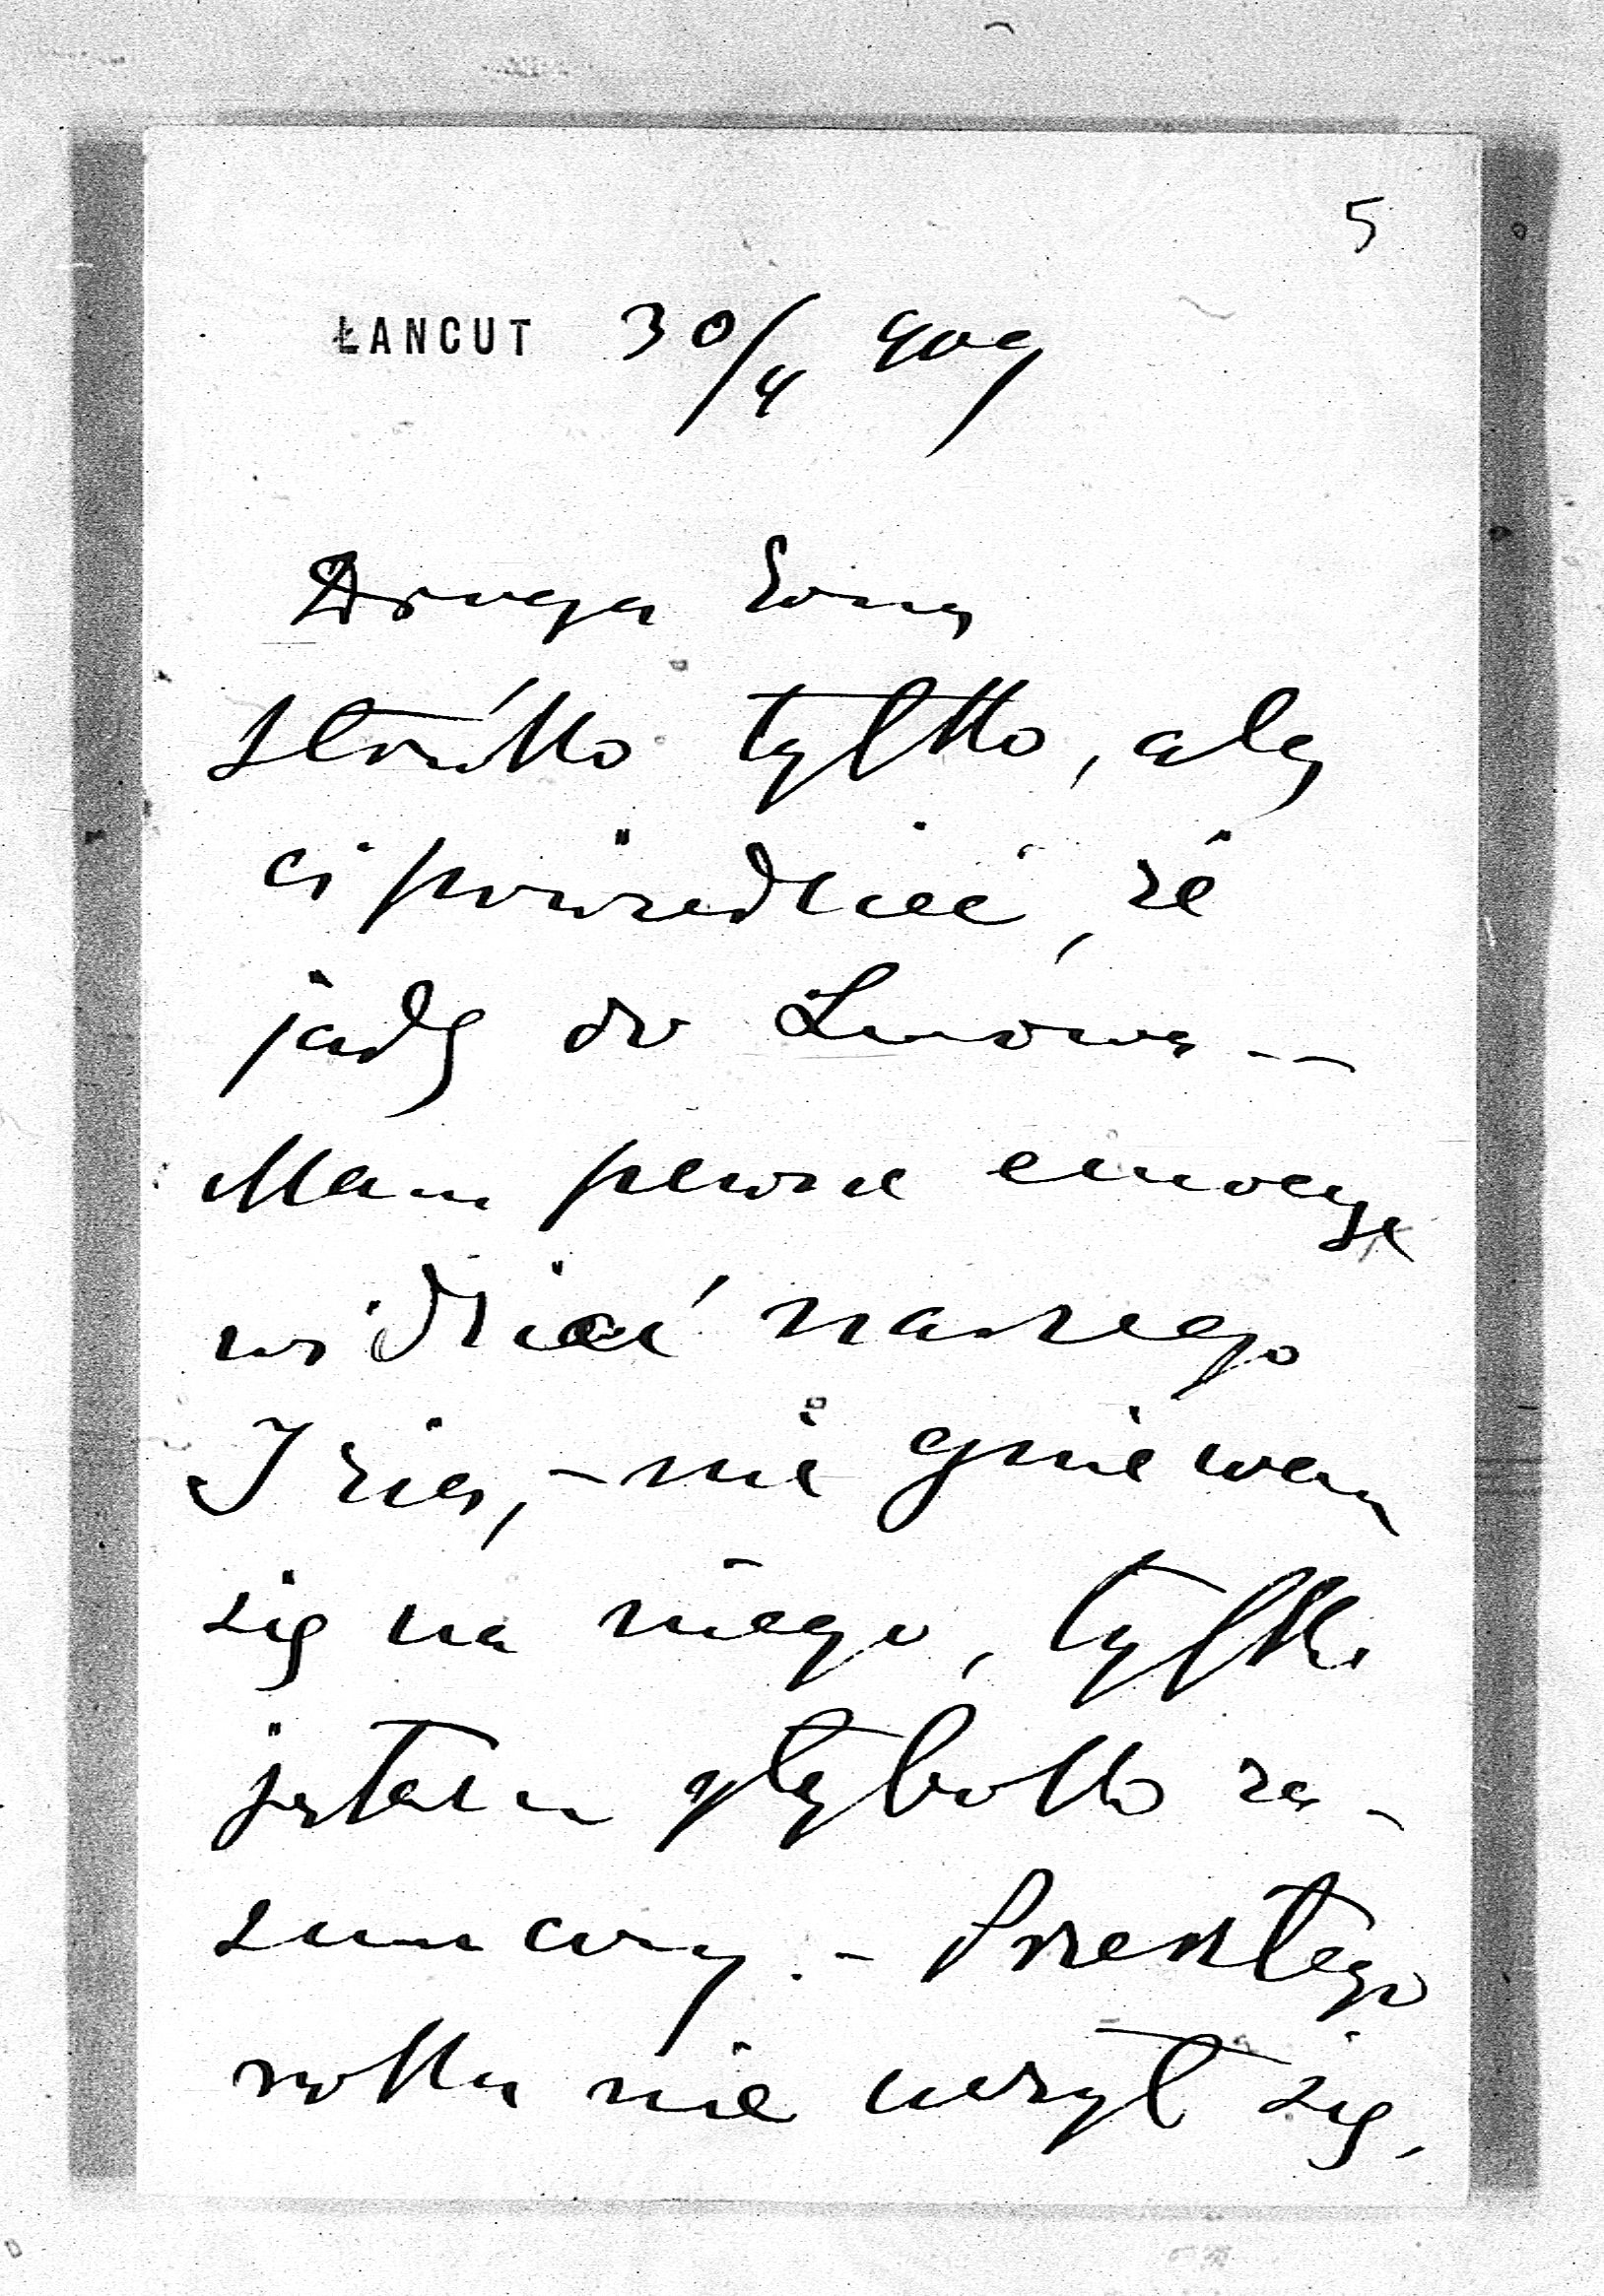 5
ŁANCUT 30/4 909
Droga Ewa
słówko tylko, aby
ci powiedzieć, że
jadę do Lwowa --
Mam pewne emocye
widzieć naszego
Izia, - nie gniewam
się na niego, tylko
jestem głęboko za-
smucony. - Przeszłego
roku nie uczył się,